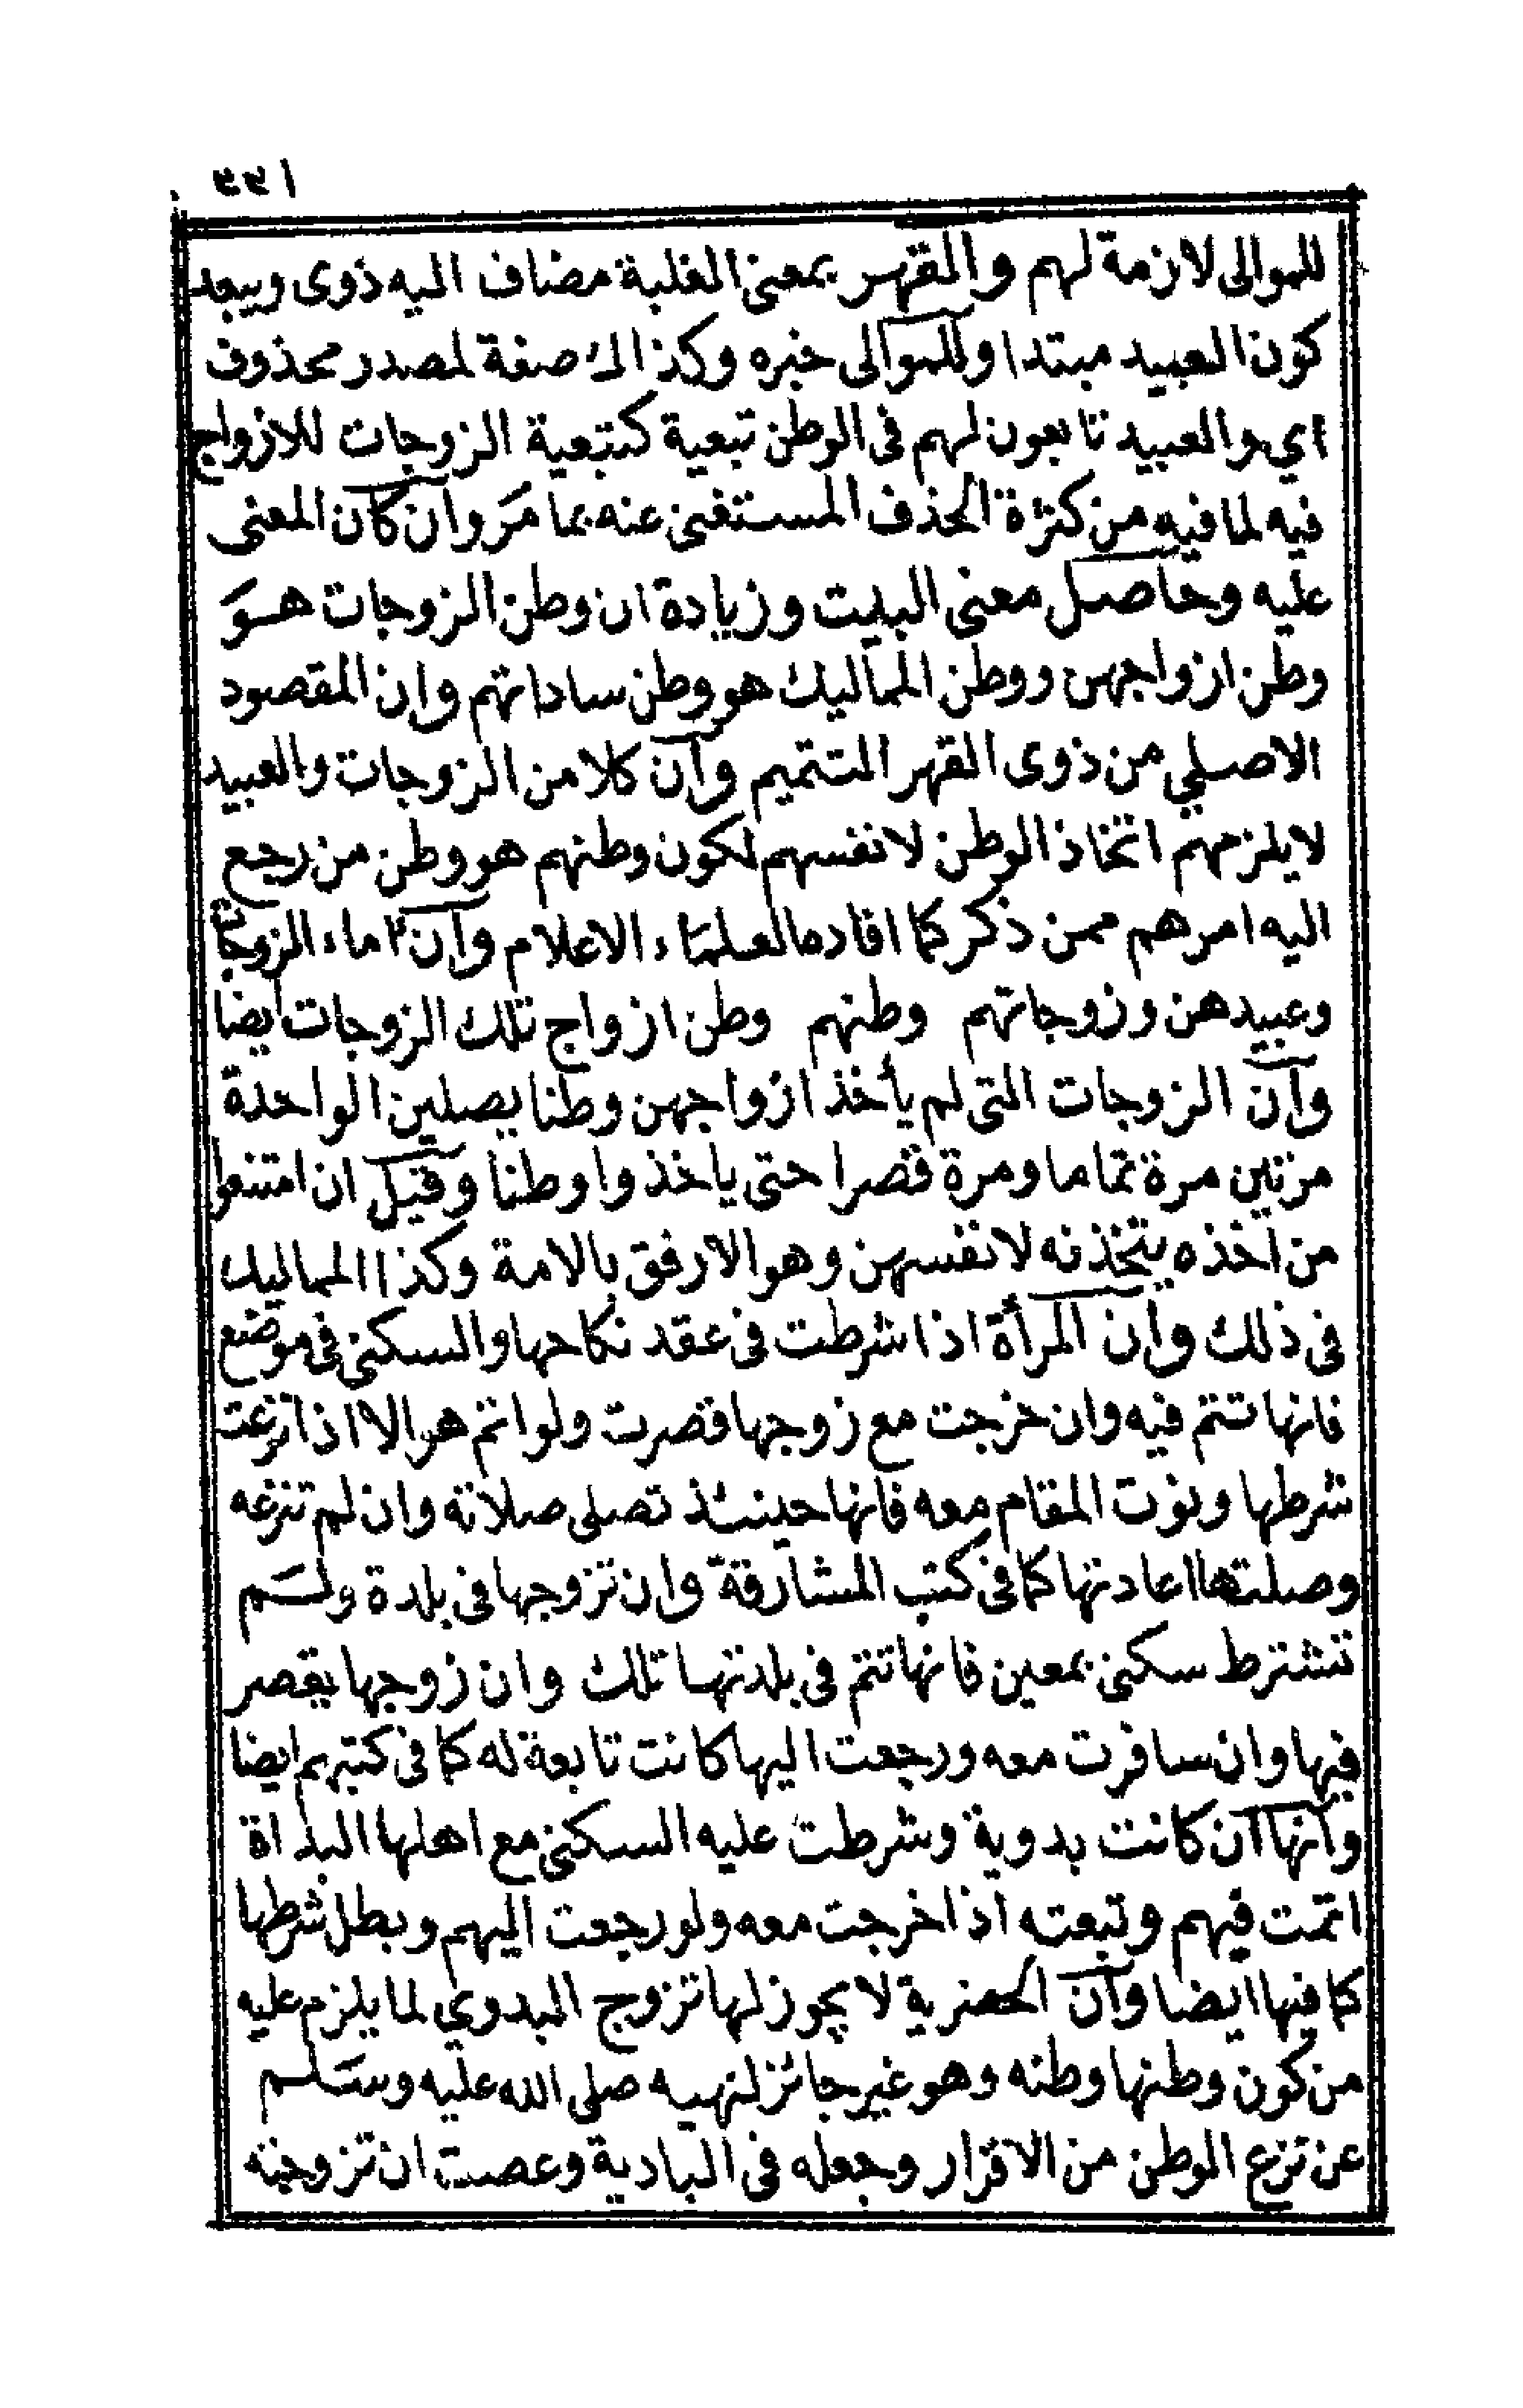 ٢٢١
للموالى لازمة لهم والقهر بمعنى الغلبة مضاف اليه ذوى ويبعد
كون العبيد مبتدا وللموالى خبره وكذالك صفة لمصدر محذوف
اي والعبيد تابعون لهم فى الوطن تبعية كتبعية الزوجات للازواج
فيه لما فيه من كثرة الحذف المستغنى عنه بما مَرّ وان كان المعنى
عليه وحاصل معنى البيت وزيادة ان وطن الزوجات هوَ
وطن ازواجهن ووطن المماليك هو وطن ساداتهم وان المقصود
الاصلي من ذوى القهر التتميم وان كلا من الزوجات والعبيد
لا يلزمهم اتخاذ الوطن لانفسهم لكون وطنهم هو وطن من رجع
اليه امرهم ممن ذكر كما افاده العلمَاء الاعلام وان اماء الزوجات
وعبيدهن وزوجاتهم وطنهم وطن ازواج تلك الزوجات ايضا
وان الزوجات التى لم يأخذ ازواجهن وطنا يصلين الواحدة
مرتين مرة تماما ومرة قصرا حتى ياخذوا وطنا وقيل ان امتنعوا
من اخذه يتخذنه لانفسهن وهو الارفق بالامة وكذا المماليك
فى ذلك وان المرأة اذا شرطت فى عقد نكاحها والسكنى فى موضع
فانها تتم فيه وان خرجت مع زوجها قصرت ولو اتم هو الا اذا نزعت
شرطها ونوت المقام معه فانها حينئذ تصلى صلاته وان لم تنزعه
وصلتها اعادتها كما فى كتب المشارقة وان تزوجها فى بلدة ولَم
تشترط سكنى بمعين فانها تتم فى بلدتها تلك وان زوجها يقصر
فيها وان سافرت معه ورجعت اليها كانت تابعة له كما فى كتبهم ايضا
وانها ان كانت بدوية وشرطت عليه السكنى مع اهلها البداة
اتمت فيهم وتبعته اذا خرجت معه ولو رجعت اليهم وبطل شرطها
كما فيها ايضا وان الحضرية لا يجوز لها تزوج البدوي لما يلزم عليه
من كون وطنها وطنه وهو غير جائز لنهيه صلى الله عليه وسَلم
عن نزع الوطن من الاقرار وجعله فى البادية وعصت ان تزوجته